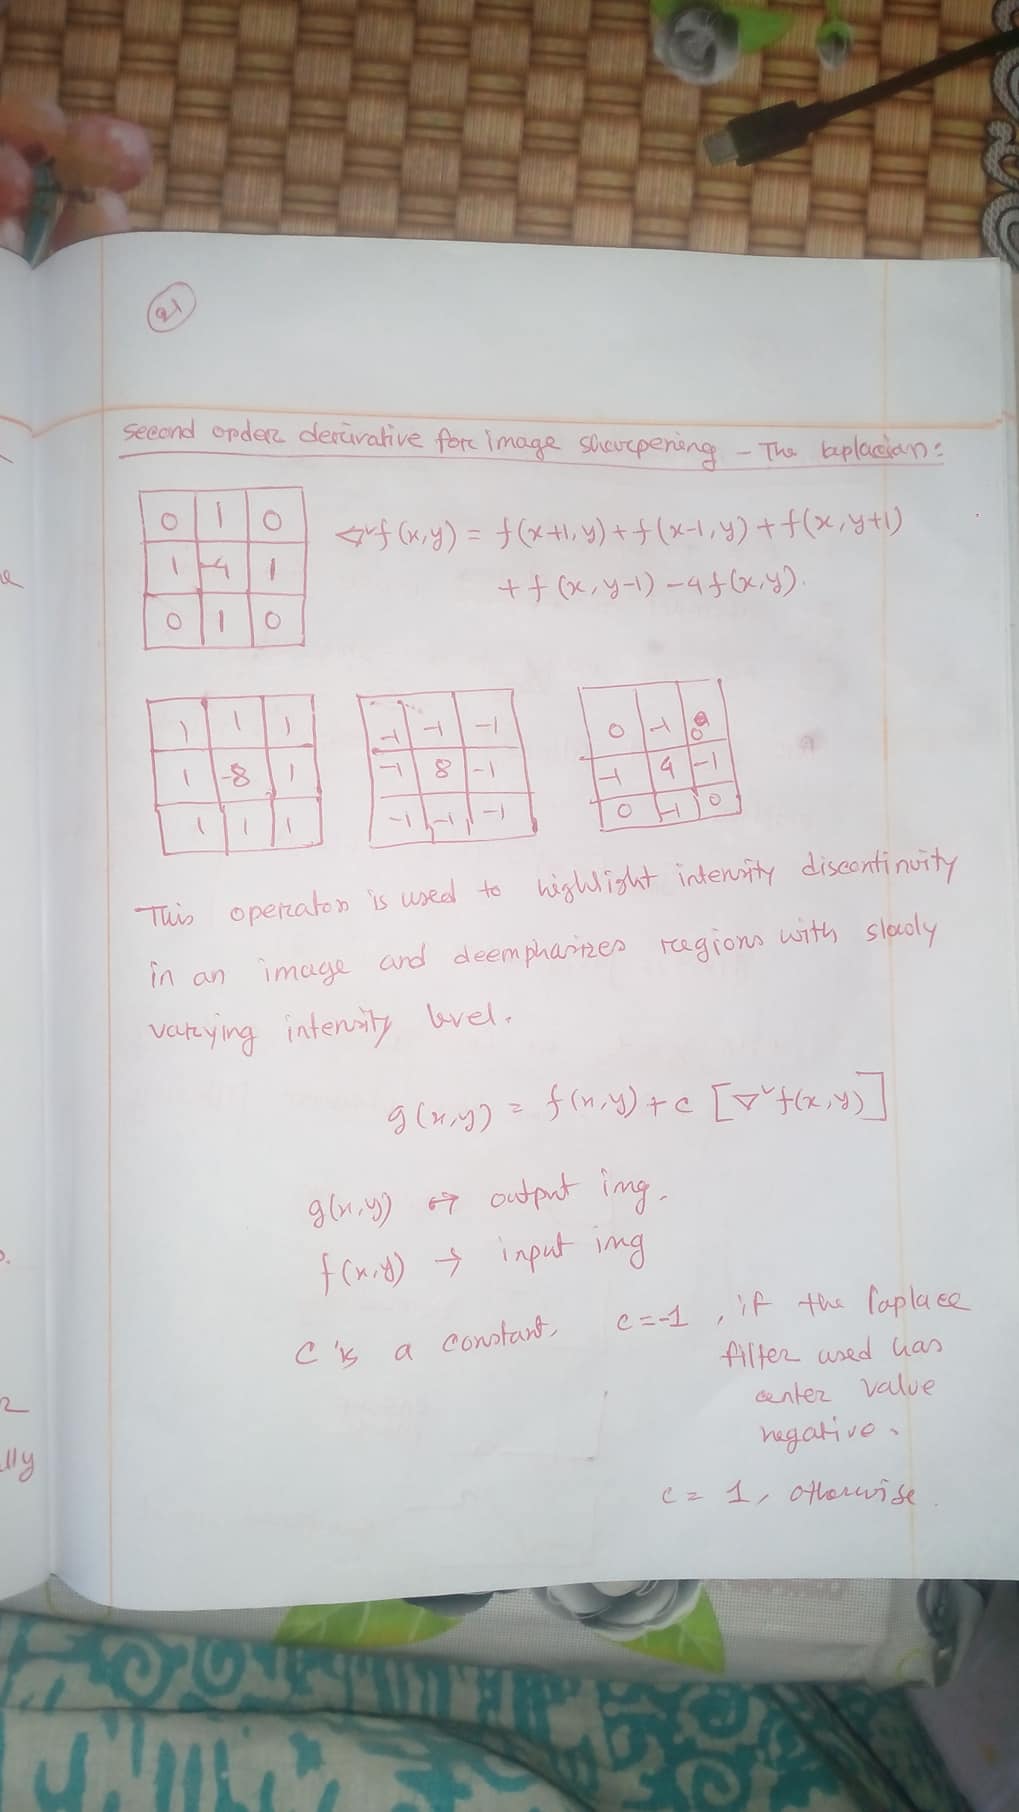 21
Second order derivative for image sharpening - The laplacian:
0 1 0
1 -4 1
0 1 0
∇²f(x,y) = f(x+1,y)+f(x-1,y)+f(x,y+1)
+f(x,y-1)-4f(x,y).
1 1 1
1 -8 1
1 1 1
-1 -1 -1
-1 8 -1
-1 -1 -1
0 -1 0
-1 4 -1
0 -1 0
This operator is used to highlight intensity discontinuity
in an image and deemphasizes regions with slowly
varying intensity level.
g(x,y) = f(x,y)+c [∇²f(x,y)]
g(x,y) → output img.
f(x,y) → input img
C is a constant, c=-1, if the laplace
filter used has
center value
negative.
c= 1, otherwise.
lly